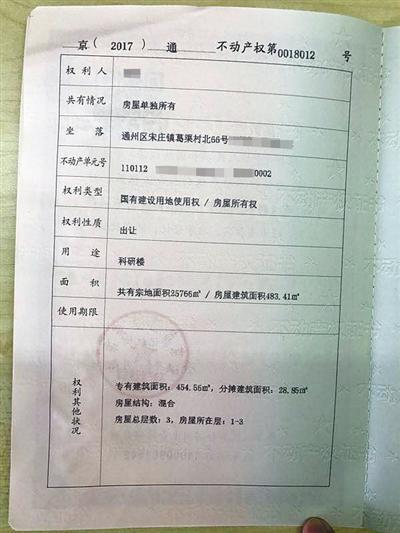 京( 2017 ) 通 不动产权第0018012 号
权利人
共有情况 房屋单独所有
坐落 通州区宋庄镇葛渠村北66号
不动产单元号 110112 0002
权利类型 国有建设用地使用权 / 房屋所有权
权利性质 出让
用途 科研楼
面积 共有宗地面积35766㎡ / 房屋建筑面积483.41㎡
使用期限
权利其他状况
专有建筑面积：454.56㎡，分摊建筑面积：28.85㎡
房屋结构：混合
房屋总层数：3，房屋所在层：1-3